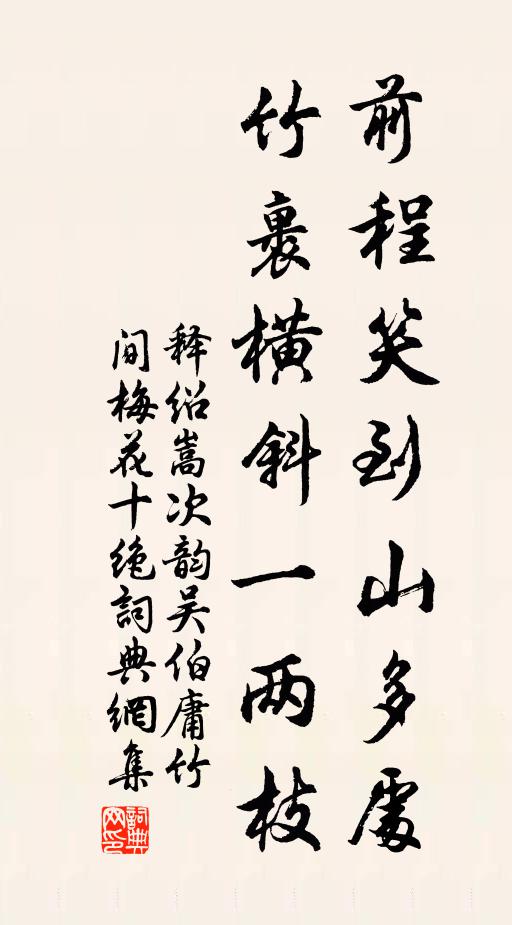 前程笑到山多處
竹裏橫斜一两枝
释绍嵩次韵吴伯庸竹
间梅花十绝詞典網集
詞典
网印